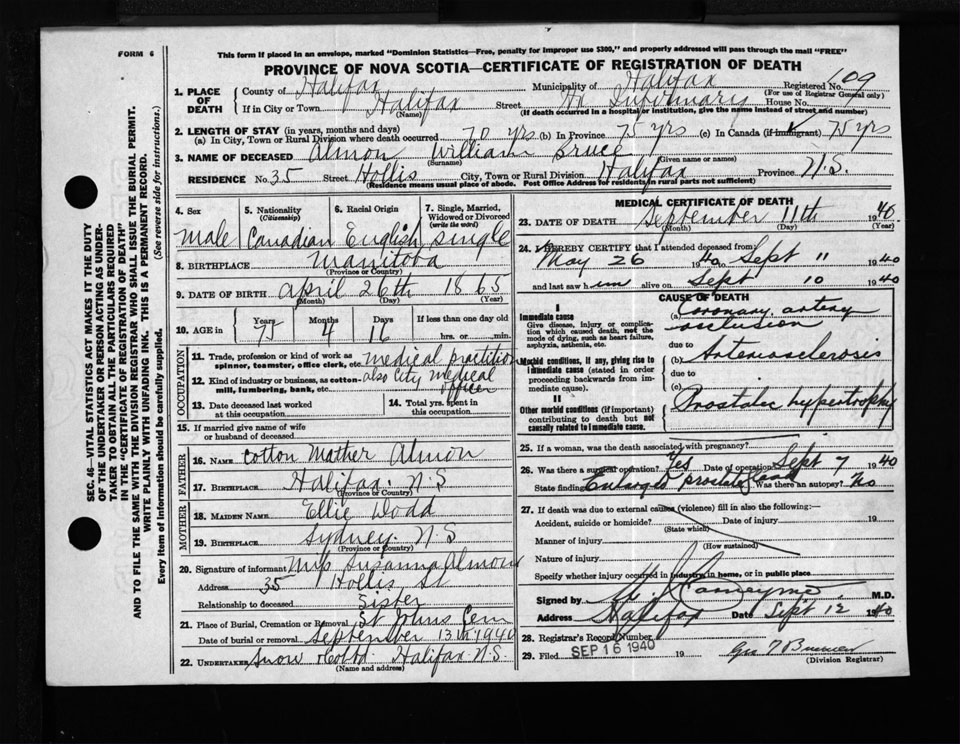 FORM 6
This form if placed in an envelope, marked "Dominion Statistics—Free, penalty for improper use $300," and properly addressed will pass through the mail "FREE"
PROVINCE OF NOVA SCOTIA—CERTIFICATE OF REGISTRATION OF DEATH
1. PLACE OF DEATH County of Halifax Municipality of Halifax Registered No. 109
(For use of Registrar General only)
If in City or Town Halifax Street Infirmary House No.
(Name) (If death occurred in a hospital or institution, give the name instead of street and number)
2. LENGTH OF STAY (in years, months and days)
(a) In City, Town or Rural Division where death occurred 70 yrs (b) In Province 75 yrs (c) In Canada (if immigrant) 75 yrs
3. NAME OF DECEASED Almon William Bruce
(Surname) (Given name or names)
RESIDENCE No. 35 Street Hollis City, Town or Rural Division Halifax Province N.S.
(Residence means usual place of abode. Post Office Address for residents in rural parts not sufficient)
4. Sex 5. Nationality (Citizenship) 6. Racial Origin 7. Single, Married, Widowed or Divorced (write the word)
Male Canadian English single
8. BIRTHPLACE Manitoba
(Province or Country)
9. DATE OF BIRTH April 26th 1865
(Month) (Day) (Year)
10. AGE in Years Months Days If less than one day old
75 4 16 hrs. or min.
OCCUPATION
11. Trade, profession or kind of work as spinner, teamster, office clerk, etc. medical practition
12. Kind of industry or business, as cotton-mill, lumbering, bank, etc. also City medical officer
13. Date deceased last worked at this occupation
14. Total yrs. spent in this occupation
15. If married give name of wife or husband of deceased
FATHER
16. NAME Cotton Mather Almon
17. BIRTHPLACE Halifax N.S
(Province or Country)
MOTHER
18. MAIDEN NAME Ellie Dodd
19. BIRTHPLACE Sydney N.S
(Province or Country)
20. Signature of informant Miss Susanna Almon
Address 35 Hollis St
Relationship to deceased Sister
21. Place of Burial, Cremation or Removal St Johns Cem
Date of burial or removal September 13th 1940
22. UNDERTAKER Snow & Co Ltd Halifax N.S.
(Name and address)
MEDICAL CERTIFICATE OF DEATH
23. DATE OF DEATH September 11th 1940.
(Month) (Day) (Year)
24. I HEREBY CERTIFY that I attended deceased from:
May 26 1940 to Sept 11 1940
and last saw him alive on Sept 10 1940
CAUSE OF DEATH
I
Immediate cause
Give disease, injury or complication which caused death, not the mode of dying, such as heart failure, asphyxia, asthenia, etc.
(a) Coronary artery occlusion
due to
Morbid conditions, if any, giving rise to immediate cause (stated in order proceeding backwards from immediate cause).
(b) Arteriosclerosis
due to
(c)
II
Other morbid conditions (if important) contributing to death but not causally related to immediate cause.
Prostatic hypertrophy
25. If a woman, was the death associated with pregnancy?
26. Was there a surgical operation? Yes Date of operation Sept 7 1940
State finding Enlarged prostate gland Was there an autopsy? No
27. If death was due to external causes (violence) fill in also the following:—
Accident, suicide or homicide? Date of injury 19
(State which)
Manner of injury
(How sustained)
Nature of injury
Specify whether injury occurred in industry, in home, or in public place
Signed by M.D.
Address Halifax Date Sept 12 1940
28. Registrar's Record Number
29. Filed SEP 16 1940 19
(Division Registrar)
SEC. 46—VITAL STATISTICS ACT MAKES IT THE DUTY
OF THE UNDERTAKER OR PERSON ACTING AS UNDERTAKER TO OBTAIN ALL THE PARTICULARS REQUIRED
IN THE "CERTIFICATE OF REGISTRATION OF DEATH"
AND TO FILE THE SAME WITH THE DIVISION REGISTRAR WHO SHALL ISSUE THE BURIAL PERMIT.
WRITE PLAINLY WITH UNFADING INK. THIS IS A PERMANENT RECORD.
Every item of information should be carefully supplied. (See reverse side for instructions.)